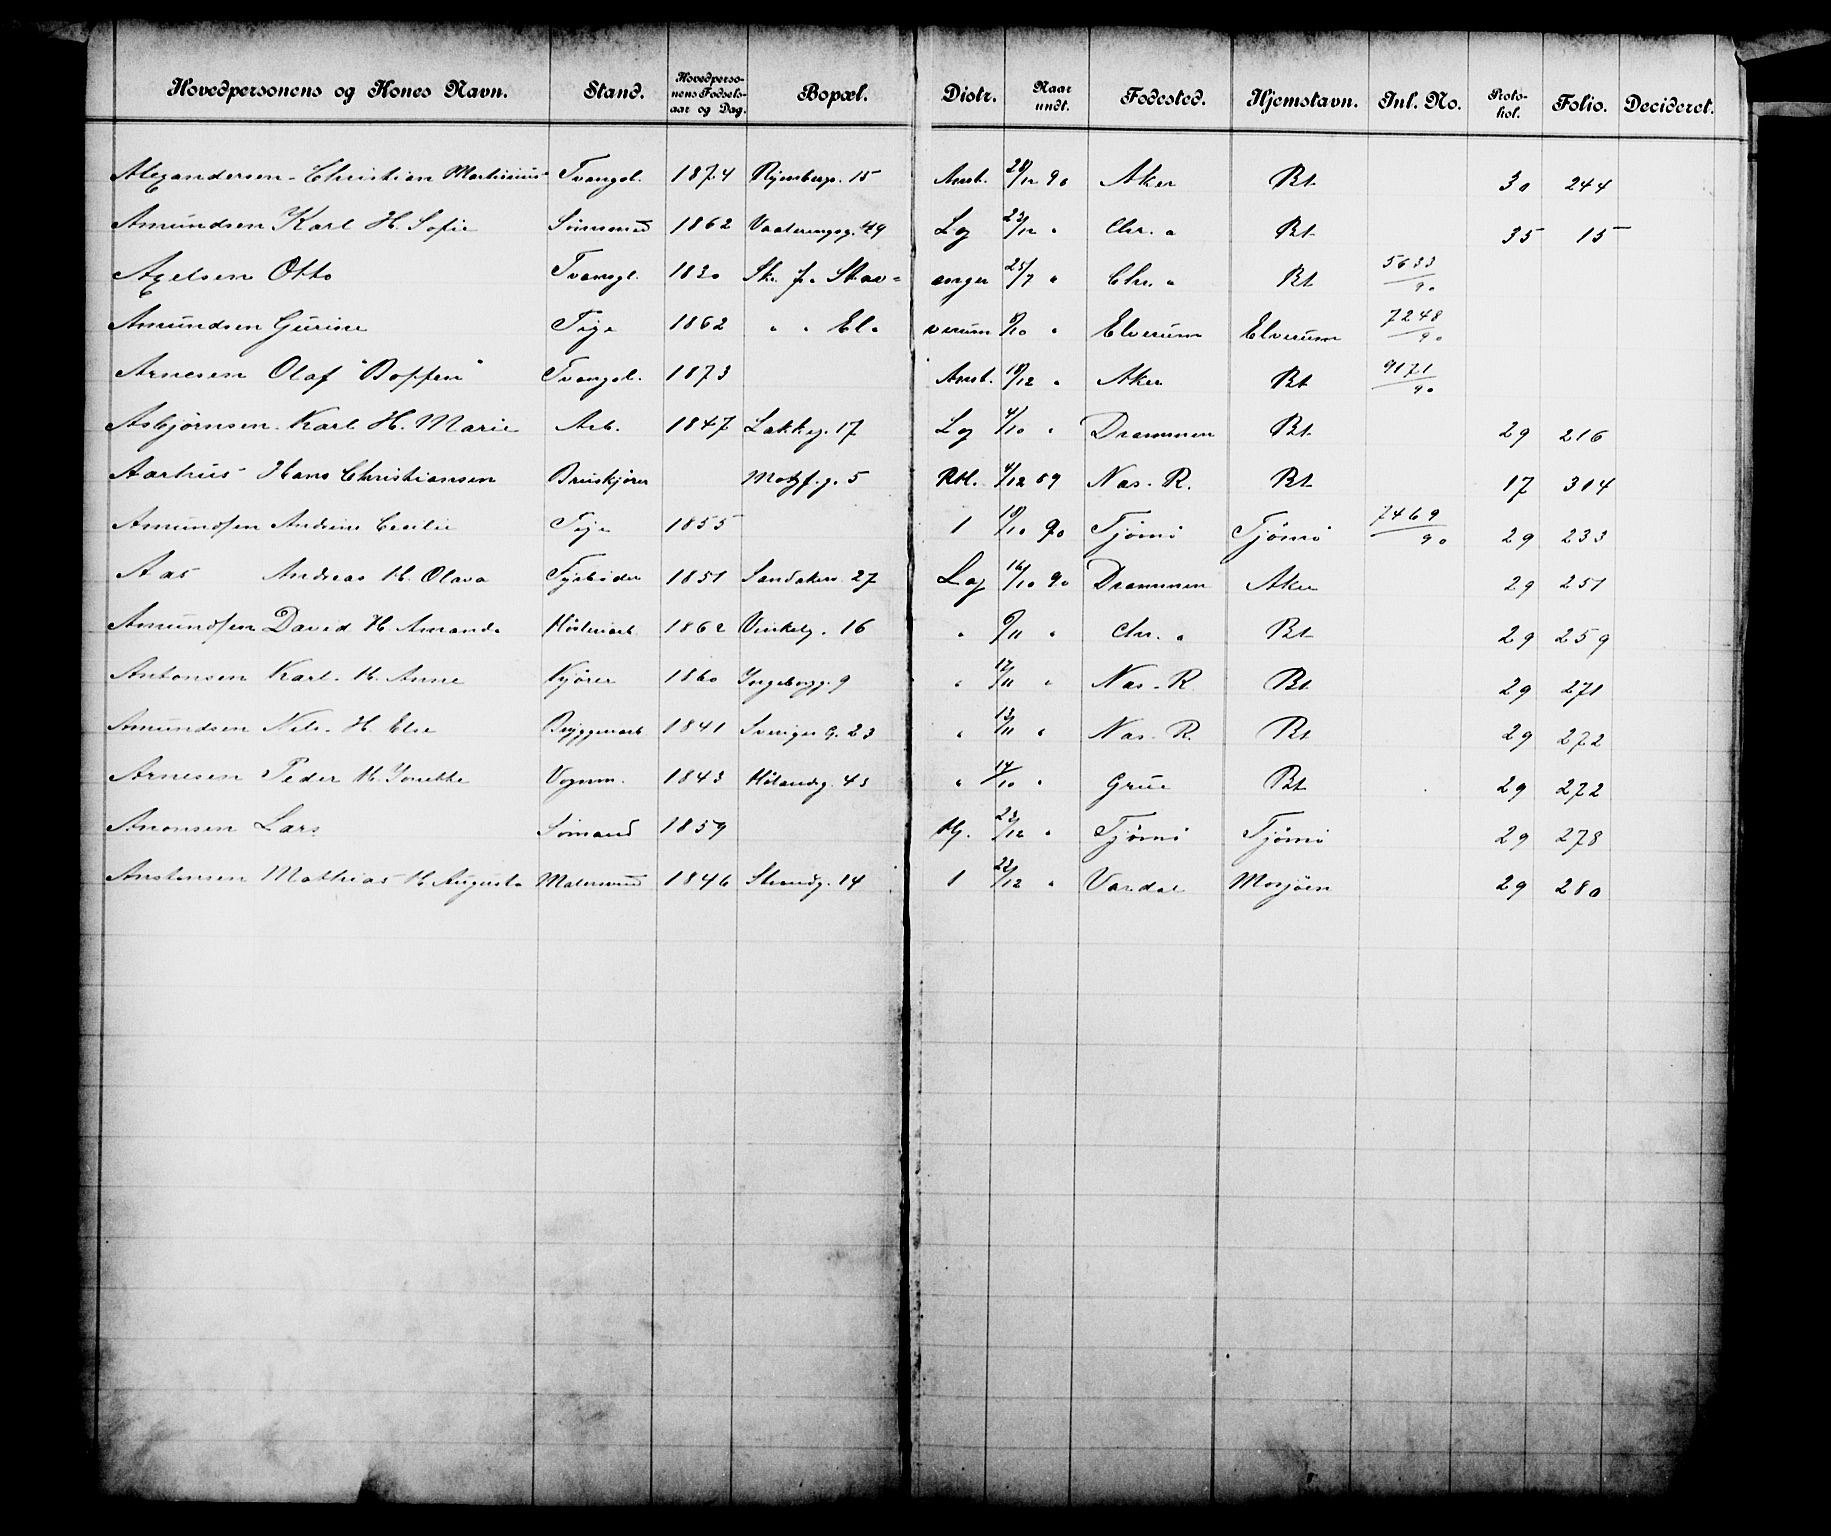 Hovedpersonens og Kones Navn. Stand. Hovedpersonens Fødselsaar og Dag. Bopæl. Distr. Naar undt. Fødested. Hjemstavn. Inl. No. Protokol. Folio. Decideret.
Alexandersen Christian Martinius Tvangsl. 1874 15 Anst. 28/12 90 Aker Bt 30 244
Amundsen Karl H. Sofie 1862 Vaalerengsg. 49 Log 23/12 " Chr. " Bt 35 15
Axelsen Otto Tvangsl. 1830 Sk. f. Stavanger 25/7 " Chr. " Bt 5633/90
Amundsen Gurine Pige 1862 " " Elverum /10 " Elverum Elverum 7248/90
Arnesen Olaf "Boffen" Tvangsl. 1873 Anst. 18/12 " Aker Bt 9171/90
Asbjørnsen Karl H. Marie Arb. 1847 Lakkeg. 17 Log 4/10 " Drammen Bt 29 216
Aarhus Hans Christiansen Bruskjører Motzf. g. 5 4/12 Næs. R. Bt 17 314
Amundsen Andrine Cecilie Pige 1855 1 18/10 90 Tjømø Tjømø 7469/90 29 233
Aas Andreas H. Olava 1851 Sandakerv. 27 Log 16/10 90 Drammen Aker 29 251
Amundsen David H. Amanda 1862 Vinkelg. 16 " /11 " Chr. " Bt 29 259
Antonsen Karl. H. Anne Kjører 1860 Ingeborgg. 9 " 12/11 " Næs. R. Bt 29 271
Amundsen Nils. H. Else Bryggeriarb 1841 Sveriges g. 23 " 13/11 " Næs. R. Bt 29 272
Arnesen Peder H. Jonette Vognm. 1843 Hølandsg. 43 " 14/10 " Grue Bt 29 272
Aronsen Lars Sømand 1859 23/12 " Tjømø Tjømø 29 278
Anstensen Mathias H. Augusta Malersvend 1846 Strandg. 14 1 22/12 " Vardal Mosjøen 29 280